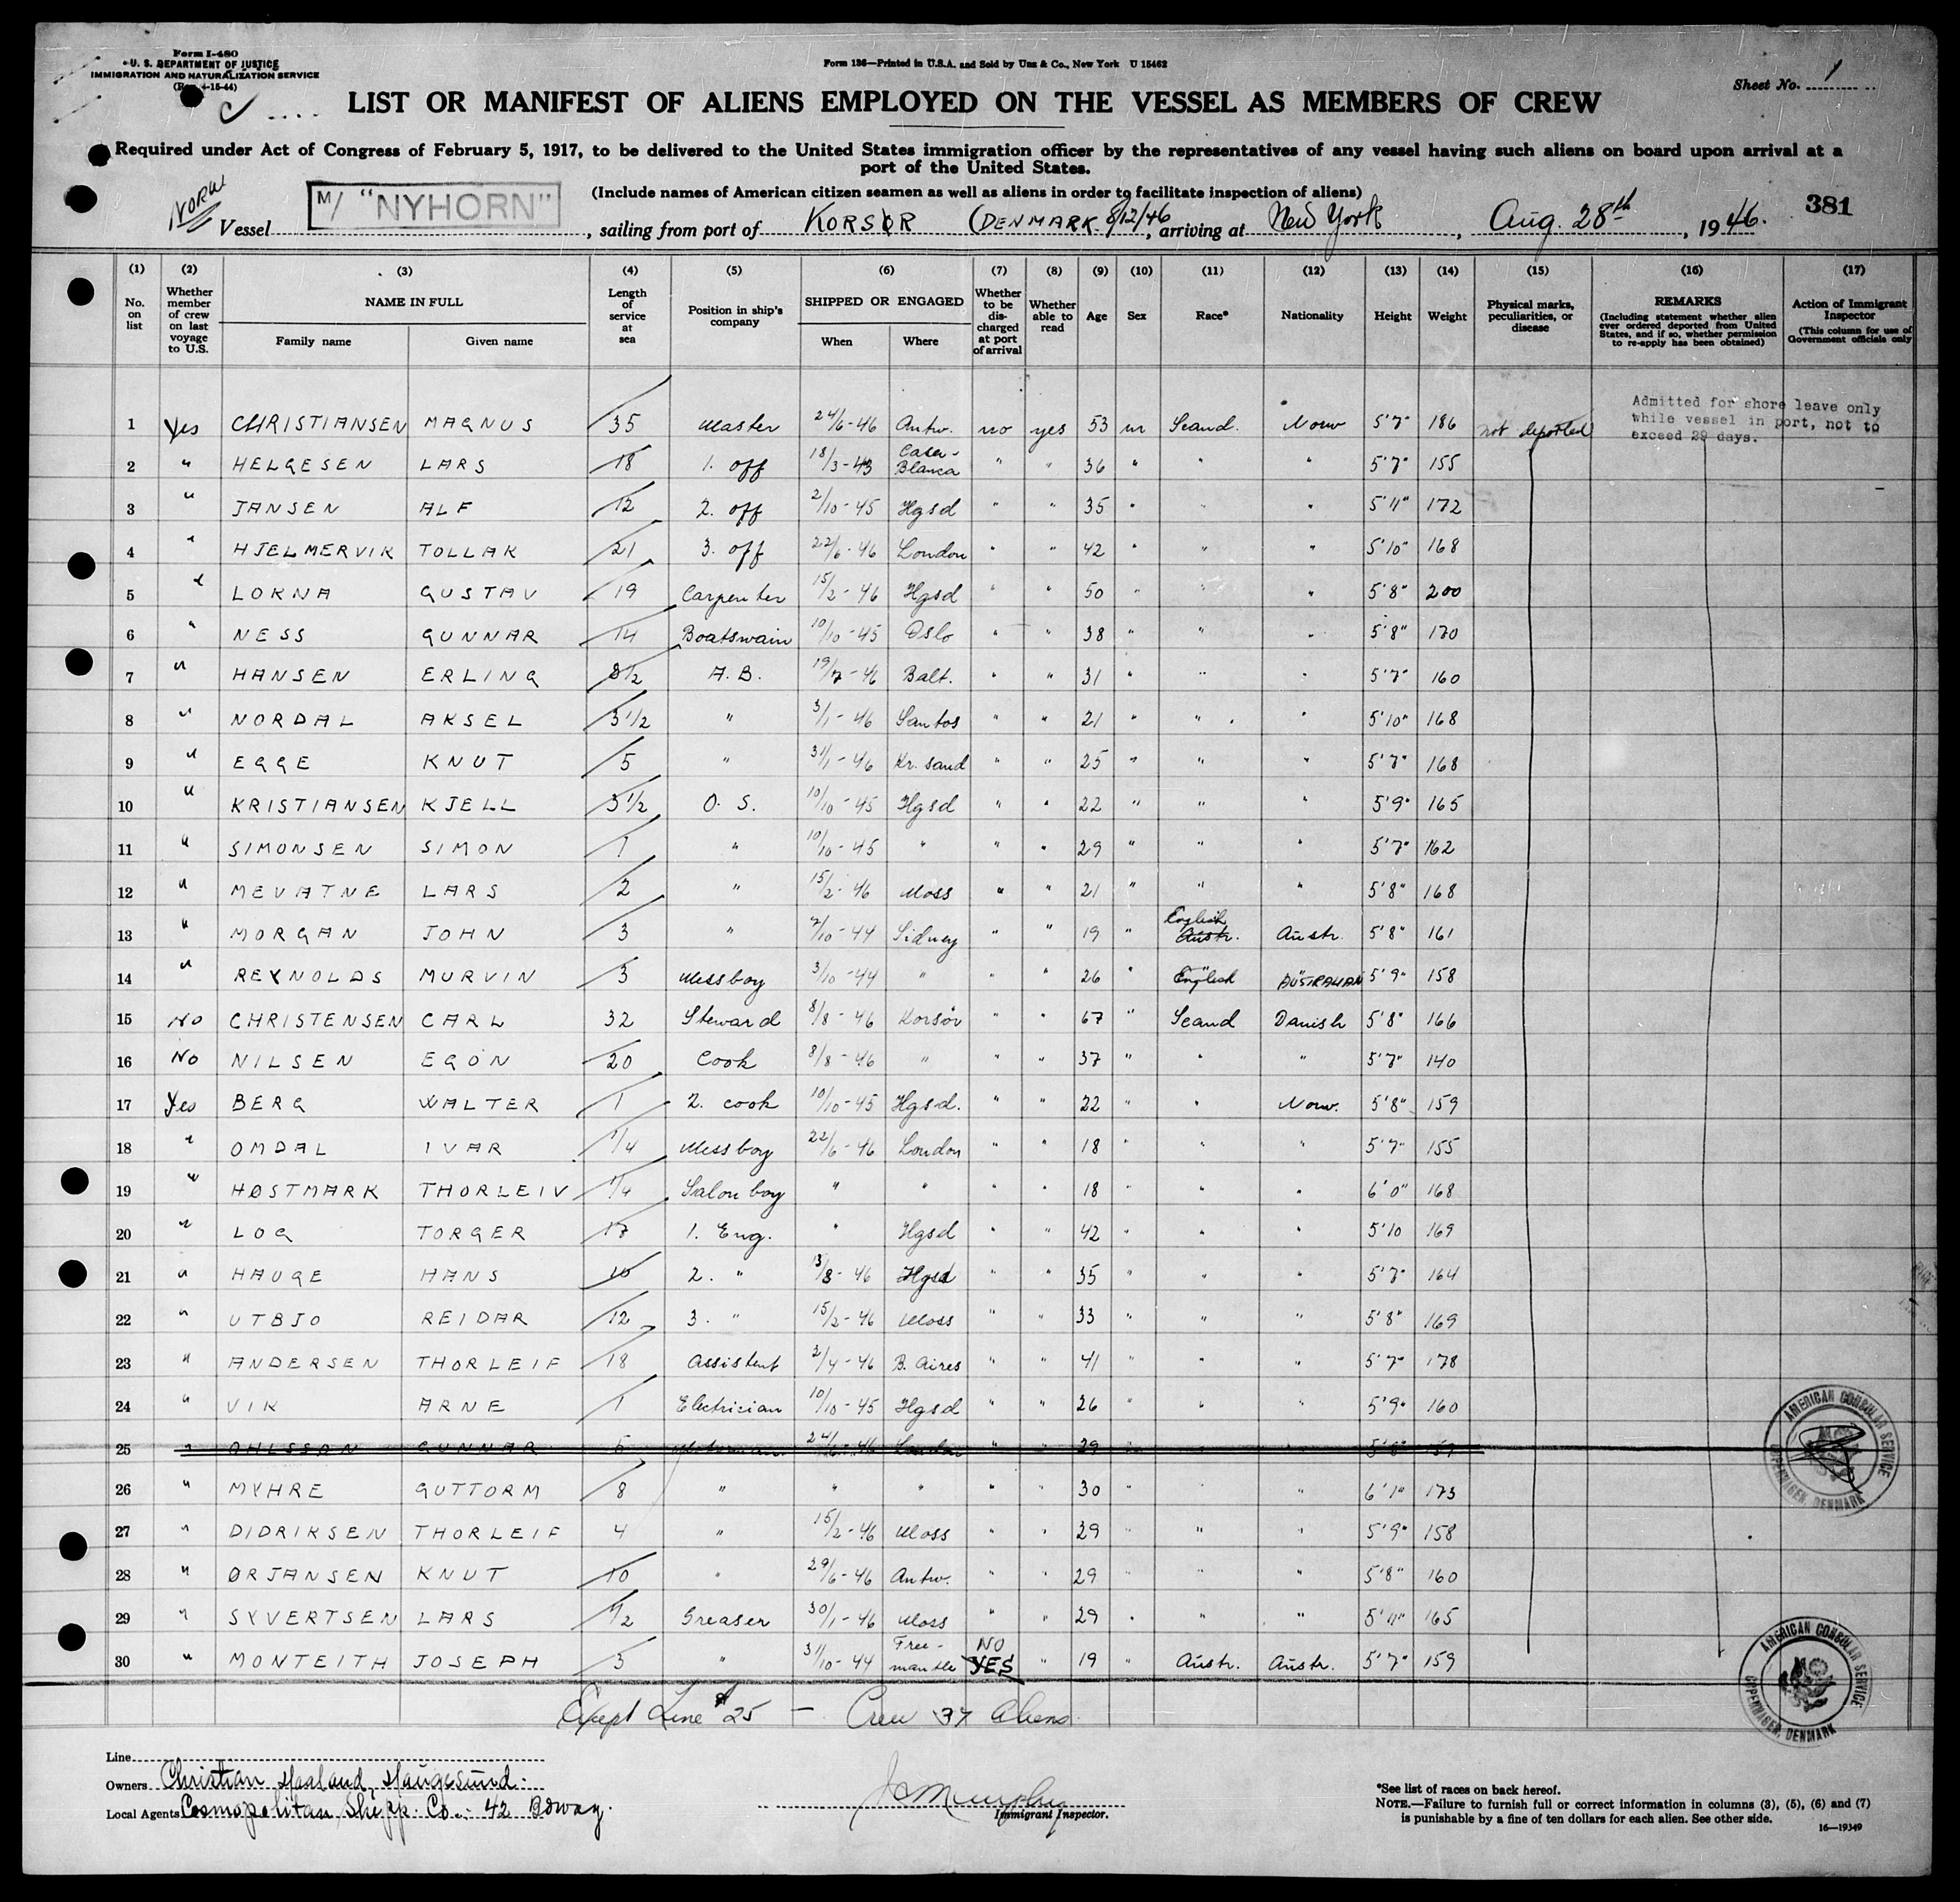 Form I-480
U. S. DEPARTMENT OF JUSTICE
IMMIGRATION AND NATURALIZATION SERVICE
(Rev. 4-15-44)
Form 136—Printed in U.S.A. and Sold by Unz & Co., New York U 15462
Sheet No. 1
LIST OR MANIFEST OF ALIENS EMPLOYED ON THE VESSEL AS MEMBERS OF CREW
Required under Act of Congress of February 5, 1917, to be delivered to the United States immigration officer by the representatives of any vessel having such aliens on board upon arrival at a
port of the United States.
(Include names of American citizen seamen as well as aliens in order to facilitate inspection of aliens)
381
Norw
Vessel M/ "NYHORN", sailing from port of KORSØR (DENMARK. 8/12/46, arriving at New York, Aug. 28th, 1946.
(1) No. on list (2) Whether member of crew on last voyage to U.S. (3) NAME IN FULL Family name Given name (4) Length of service at sea (5) Position in ship's company (6) SHIPPED OR ENGAGED When Where (7) Whether to be discharged at port of arrival (8) Whether able to read (9) Age (10) Sex (11) Race* (12) Nationality (13) Height (14) Weight (15) Physical marks, peculiarities, or disease (16) REMARKS (Including statement whether alien ever ordered deported from United States, and if so, whether permission to re-apply has been obtained) (17) Action of Immigrant Inspector (This column for use of Government officials only)
Admitted for shore leave only
while vessel in port, not to
exceed 29 days.
1 Yes CHRISTIANSEN MAGNUS 35 Master 24/6-46 Antw. no yes 53 m Scand. Norw 5'7" 186 not deported
2 " HELGESEN LARS 18 1. off 18/3-43 Casa-Blanca " " 36 " " " 5'7" 155
3 " JANSEN ALF 12 2. off 2/10-45 Hgsd " " 35 " " " 5'11" 172
4 " HJELMERVIK TOLLAK 21 3. off 22/6-46 London " " 42 " " " 5'10" 168
5 " LORNA GUSTAV 19 Carpenter 15/2-46 Hgsd " " 50 " " " 5'8" 200
6 " NESS GUNNAR 14 Boatswain 10/10-45 Oslo " " 38 " " " 5'8" 170
7 " HANSEN ERLING 8½ A.B. 19/7-46 Balt. " " 31 " " " 5'7" 160
8 " NORDAL AKSEL 3½ " 3/1-46 Santos " " 21 " " " 5'10" 168
9 " EGGE KNUT 5 " 31/1-46 Kr. sand " " 25 " " " 5'7" 168
10 " KRISTIANSEN KJELL 3½ O. S. 10/10-45 Hgsd " " 22 " " " 5'9" 165
11 " SIMONSEN SIMON 1 " 10/10-45 " " " 29 " " " 5'7" 162
12 " MEVATNE LARS 2 " 15/2-46 Moss " " 21 " " " 5'8" 168
13 " MORGAN JOHN 3 " 2/10-44 Sidney " " 19 " English Austr. Austr. 5'8" 161
14 " REYNOLDS MURVIN 3 Messboy 3/10-44 " " " 26 " English AUSTRALIAN 5'9" 158
15 No CHRISTENSEN CARL 32 Steward 8/8-46 Korsör " " 67 " Scand Danish 5'8" 166
16 No NILSEN EGON 20 Cook 8/8-46 " " " 37 " " " 5'7" 140
17 Yes BERG WALTER 1 2. cook 10/10-45 Hgsd. " " 22 " " Norw. 5'8" 159
18 " OMDAL IVAR 1/4 Messboy 22/6-46 London " " 18 " " " 5'7" 155
19 " HØSTMARK THORLEIV 1/4 Salon boy " " " " 18 " " " 6'0" 168
20 " LOG TORGER 17 1. Eng. " Hgsd " " 42 " " " 5'10 169
21 " HAUGE HANS 10 2. " 13/8-46 Hgsd " " 35 " " " 5'7" 164
22 " UTBJO REIDAR 12 3. " 15/2-46 Moss " " 33 " " " 5'8" 169
23 " ANDERSEN THORLEIF 18 Assistent 2/4-46 B. Aires " " 41 " " " 5'7" 178
24 " VIK ARNE 1 Electrician 10/10-45 Hgsd " " 26 " " " 5'9" 160
25 " OHLSSON GUNNAR 5 Motorman 24/6-46 London " " 29 " " " 5'8" 159
26 " MYHRE GUTTORM 8 " " " " " 30 " " " 6'1" 173
27 " DIDRIKSEN THORLEIF 4 " 15/2-46 Moss " " 29 " " " 5'9" 158
28 " ØRJANSEN KNUT 10 " 29/6-46 Antw. " " 29 " " " 5'8" 160
29 " SYVERTSEN LARS ½ Greaser 30/1-46 Moss " " 29 " " " 5'11" 165
30 " MONTEITH JOSEPH 3 " 31/10-44 Free-mantle NO YES " 19 " Austr. Austr. 5'7" 159
AMERICAN CONSULAR SERVICE
COPENHAGEN, DENMARK
AMERICAN CONSULAR SERVICE
COPENHAGEN, DENMARK
Except Line # 25 — Crew 37 Aliens.
Line
Owners Christian Haaland, Haugesund.
Local Agents Cosmopolitan Shipp. Co. 42 Bdway.
J Murphy
Immigrant Inspector.
*See list of races on back hereof.
NOTE.—Failure to furnish full or correct information in columns (3), (5), (6) and (7)
is punishable by a fine of ten dollars for each alien. See other side.
16—19349